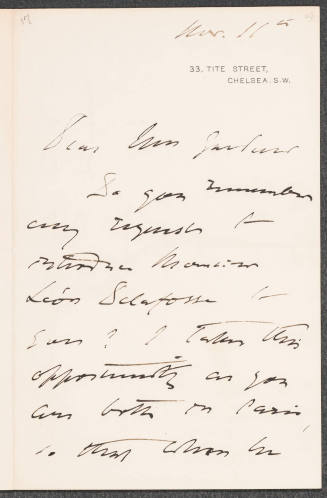 Nov. 11th
33, TITE STREET,
CHELSEA. S.W.
Dear Mrs Gardner
Do you remember
my request to
introduce Monsieur
Léon Delafosse to
you? I take this
opportunity as you
are both in Paris,
so that when he